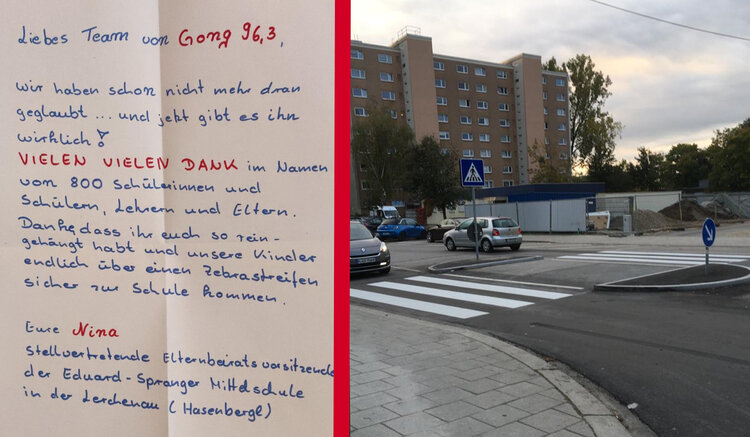 Liebes Team von Gong 96,3,
wir haben schon nicht mehr dran
geglaubt ... und jetzt gibt es ihn
wirklich!
VIELEN VIELEN DANK im Namen
von 800 Schülerinnen und
Schülern, Lehrern und Eltern.
Danke, dass ihr euch so rein-
gehängt habt und unsere Kinder
endlich über einen Zebrastreifen
sicher zur Schule kommen.
Eure Nina
Stellvertretende Elternbeiratsvorsitzende
der Eduard-Spranger Mittelschule
in der Lerchenau (Hasenbergl)